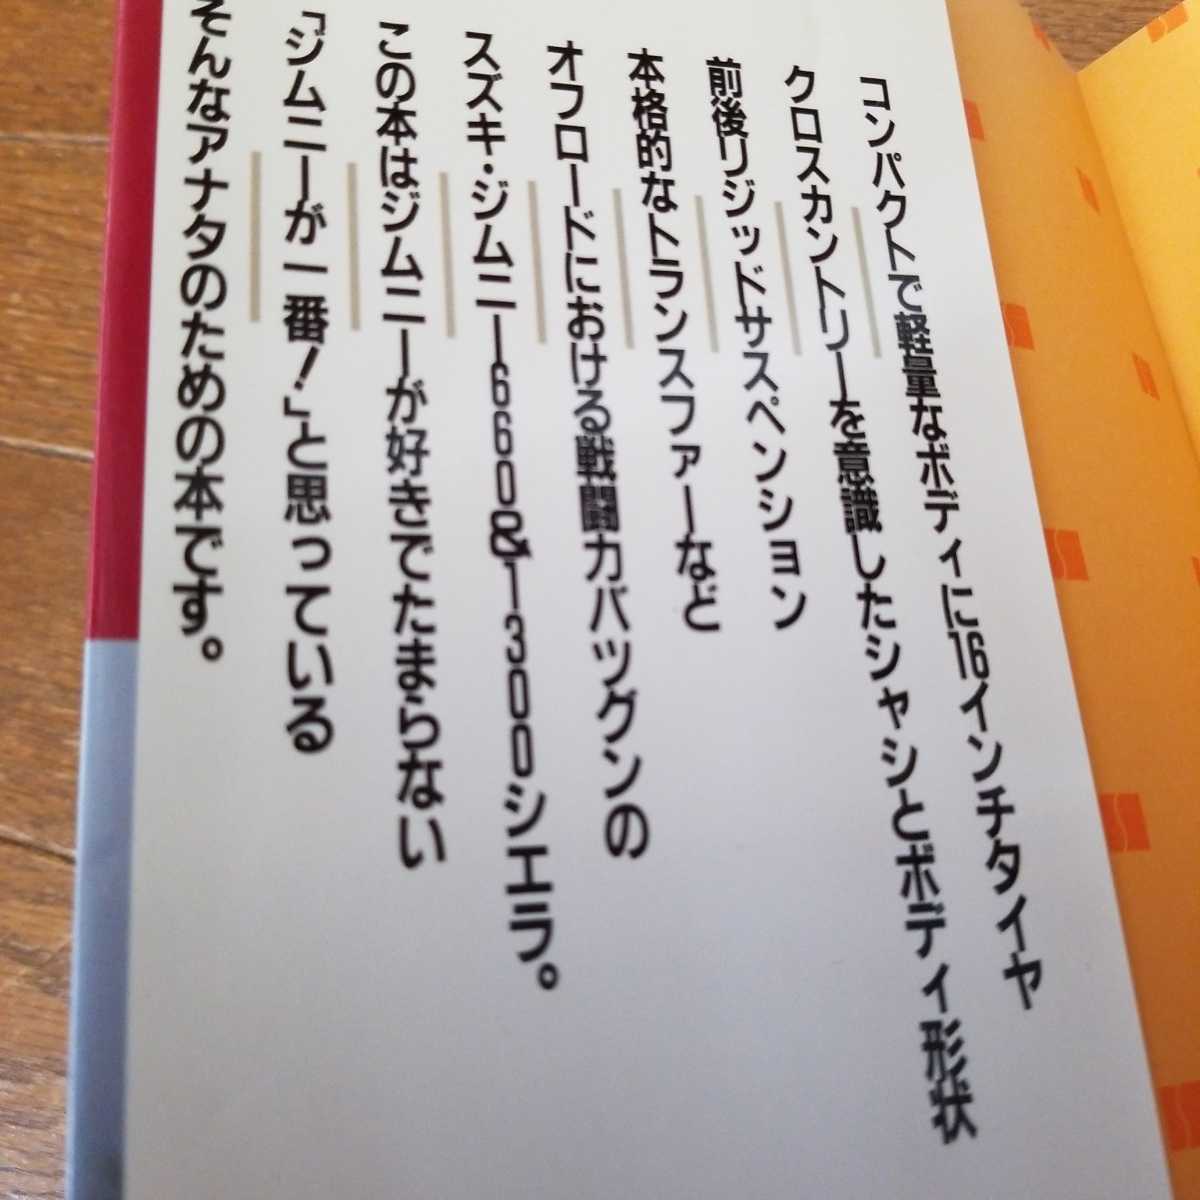 コンパクトで軽量なボディに16インチタイヤ
クロスカントリーを意識したシャシとボディ形状
前後リジッドサスペンション
本格的なトランスファーなど
オフロードにおける戦闘力バツグンの
スズキ・ジムニー660&1300シエラ。
この本はジムニーが好きでたまらない
「ジムニーが一番!」と思っている
そんなアナタのための本です。